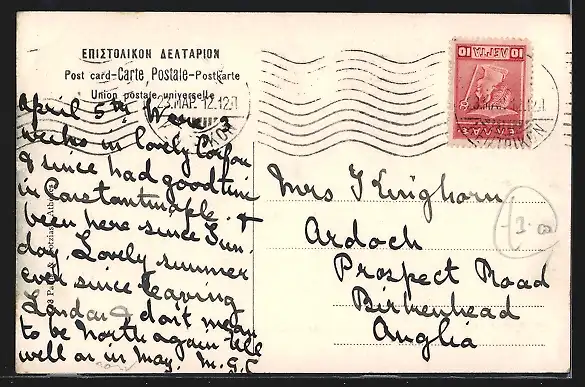 ΕΠΙΣΤΟΛΙΚΟΝ ΔΕΛΤΑΡΙΟΝ
Post card-Carte Postale-Postkarte
Union postale universelle
23.ΜΑΡ. 12.12
10 ΛΕΠΤΑ 10
ΕΛΛΑΣ
April 5th Were 3
weeks in lovely Corfou
& since had good time
in Constantinople. &
been here since Sun-
day. Lovely summer
ever since leaving
London & don't mean
to be North again till
well on in May. M.G.C
Mrs Kinghorn
Ardoch
Prospect Road
Birkenhead
Anglia